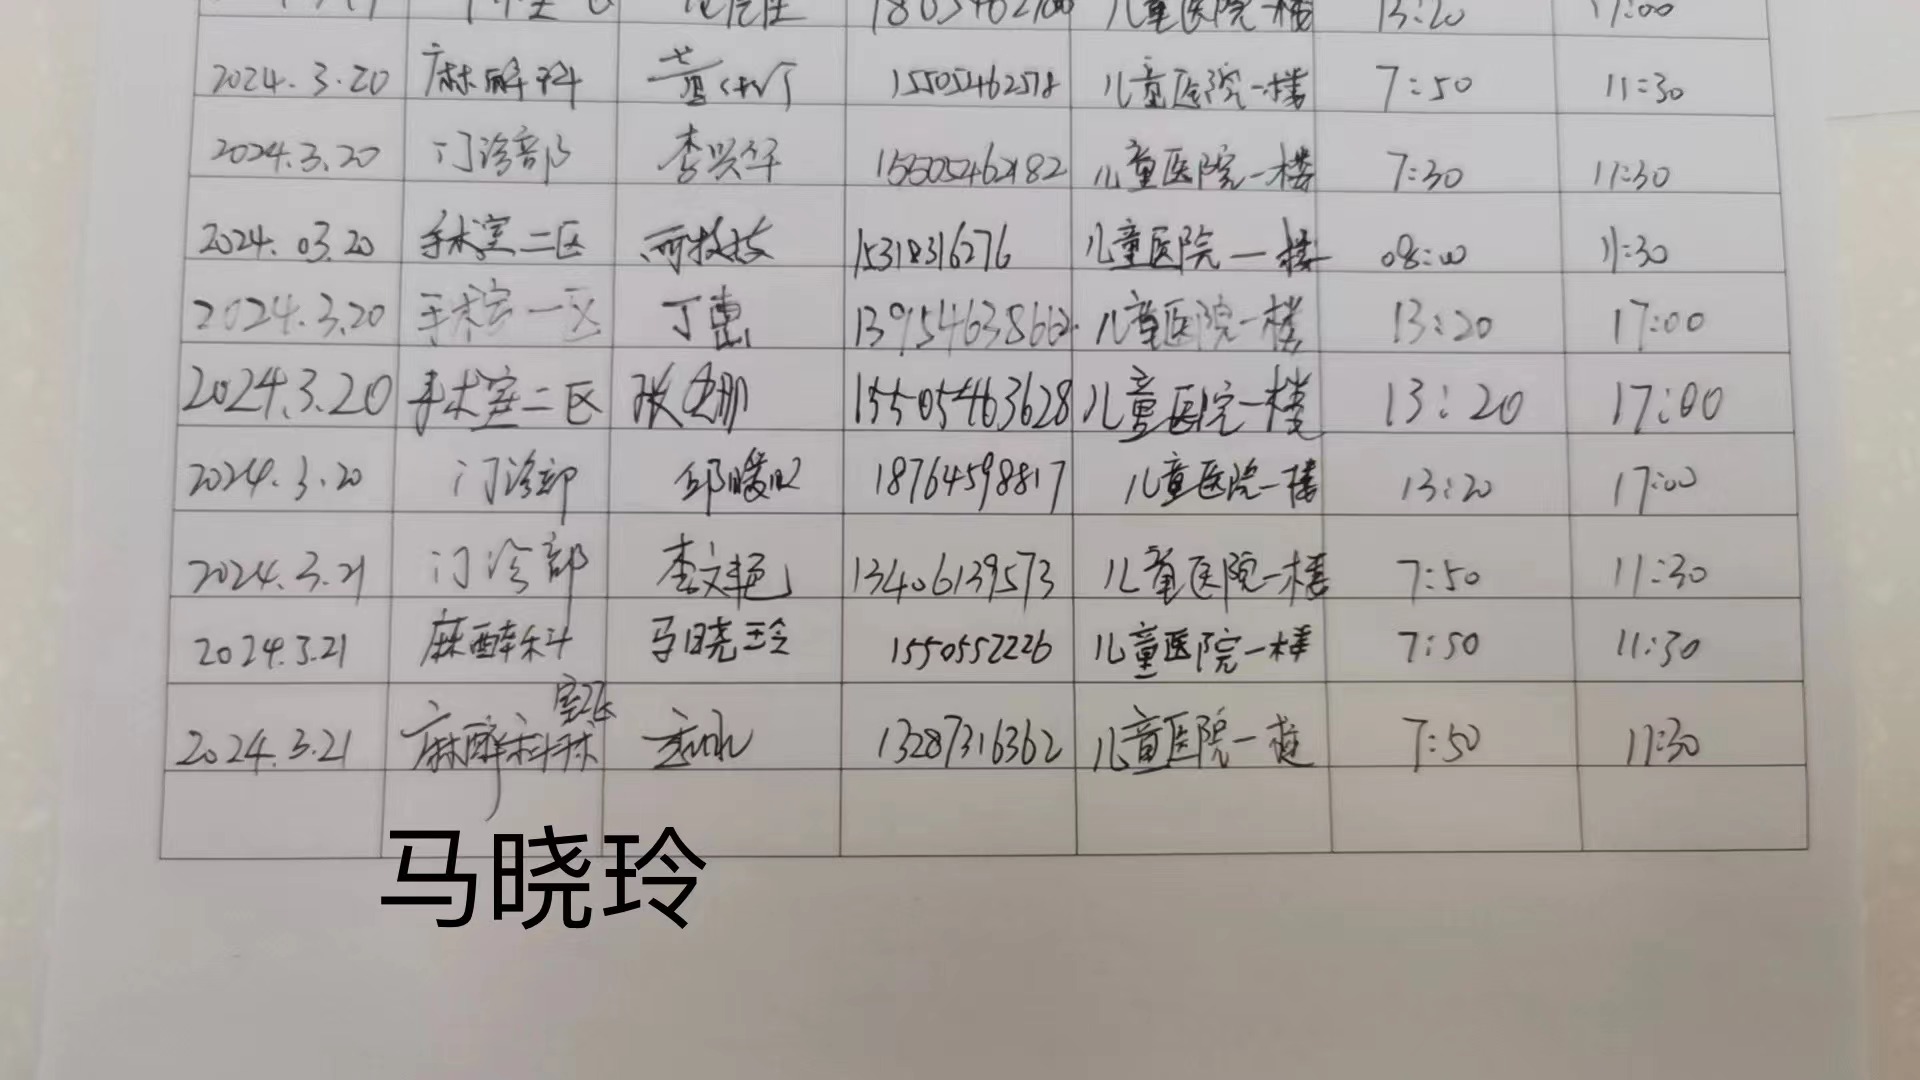 13:20 17:00
2024.3.20 麻醉科 15505462578 儿童医院一楼 7:50 11:30
2024.3.20 门诊部 李兴华 15505462182 儿童医院一楼 7:30 11:30
2024.03.20 手术室二区 15318316276 儿童医院一楼 08:00 11:30
2024.3.20 手术室一区 丁惠 13954638662 儿童医院一楼 13:20 17:00
2024.3.20 手术室二区 张 娜 15505463628 儿童医院一楼 13:20 17:00
2024.3.20 门诊部 邱暖暖 18764598817 儿童医院一楼 13:20 17:00
2024.3.21 门诊部 李文艳 13406139573 儿童医院一楼 7:50 11:30
2024.3.21 麻醉科 马晓玲 1550552226 儿童医院一楼 7:50 11:30
2024.3.21 麻醉科 13287316362 儿童医院一楼 7:50 11:30
马晓玲